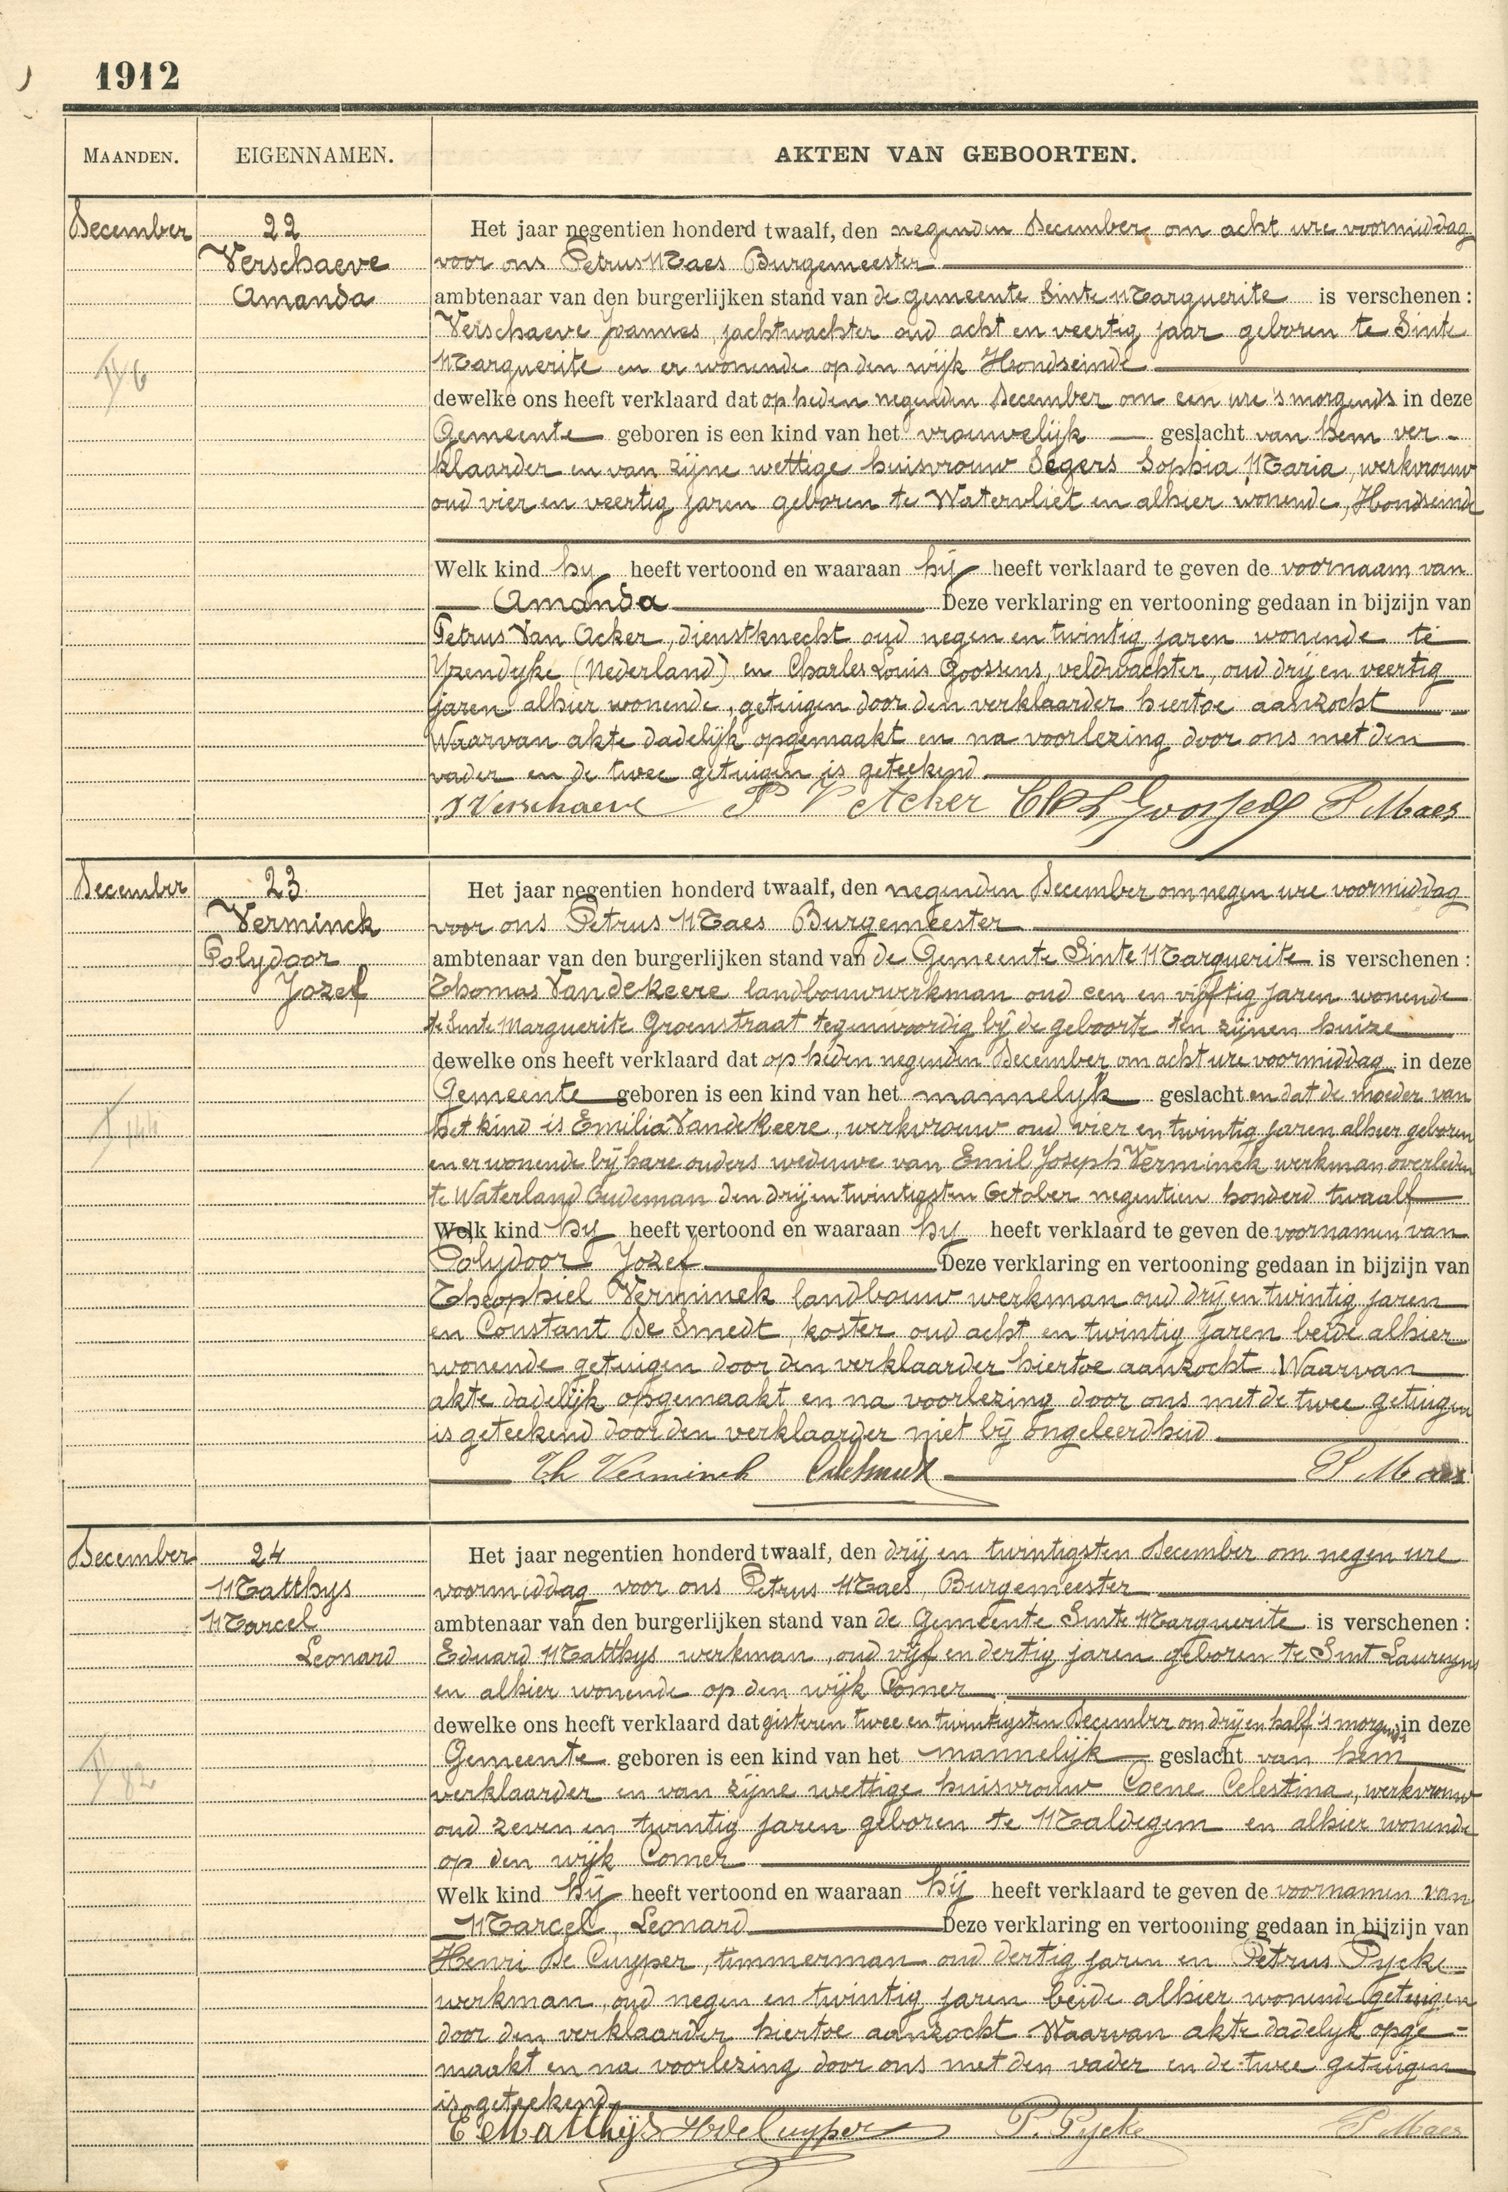 1912
MAANDEN. EIGENNAMEN. AKTEN VAN GEBOORTEN.
December 22 Het jaar negentien honderd twaalf, den negenden December om acht ure voormiddag
Verschaeve voor ons Petrus Maes Burgemeester
Amanda ambtenaar van den burgerlijken stand van de gemeente Sinte Marguerite is verschenen :
Verschaeve Joannes, jachtwachter oud acht en veertig jaar geboren te Sinte
6 Marguerite en er wonende op den wijk Hondseinde
dewelke ons heeft verklaard dat op heden negenden December om een ure 's morgends in deze
Gemeente geboren is een kind van het vrouwelijk geslacht van hem ver-
klaarder en van zijne wettige huisvrouw Segers Sophia Maria, werkvrouw
oud vier en veertig jaren geboren te Watervliet en alhier wonende, Hondseinde
Welk kind hy heeft vertoond en waaraan hij heeft verklaard te geven de voornaam van
Amanda Deze verklaring en vertooning gedaan in bijzijn van
Petrus Van Acker, dienstknecht oud negen en twintig jaren wonende te
Yzendyke (Nederland) en Charles Louis Goossens, veldwachter, oud drij en veertig
jaren alhier wonende, getuigen door den verklaarder hiertoe aanzocht
Waarvan akte dadelijk opgemaakt en na voorlezing door ons met den
vader en de twee getuigen is geteekend
J Verschaeve P V Acker Ch L Goossens P Maes
December 23 Het jaar negentien honderd twaalf, den negenden December om negen ure voormiddag
Verminck voor ons Petrus Maes Burgemeester
Polydoor ambtenaar van den burgerlijken stand van de Gemeente Sinte Marguerite is verschenen :
Jozef Thomas Vandekeere landbouwwerkman oud een en vijftig jaren wonende
te Sinte Marguerite Groenstraat tegenwoordig bij de geboorte ten zijnen huize
dewelke ons heeft verklaard dat op heden negenden December om acht ure voormiddag in deze
Gemeente geboren is een kind van het mannelyk geslacht en dat de moeder van
144 het kind is Emilia Vandekeere, werkvrouw oud vier en twintig jaren alhier geboren
en er wonende bij hare ouders weduwe van Emil Joseph Verminck werkman overleden
te Waterland Oudeman den drij en twintigsten October negentien honderd twaalf
Welk kind hy heeft vertoond en waaraan hy heeft verklaard te geven de voornamen van
Polydoor Jozef Deze verklaring en vertooning gedaan in bijzijn van
Theophiel Verminck landbouw werkman oud drij en twintig jaren
en Constant De Smedt, koster oud acht en twintig jaren beide alhier
wonende getuigen door den verklaarder hiertoe aanzocht Waarvan
akte dadelijk opgemaakt en na voorlezing door ons met de twee getuigen
is geteekend door den verklaarder niet bij ongeleerdheid
Th Verminck P Maes
December 24 Het jaar negentien honderd twaalf, den drij en twintigsten December om negen ure
Matthys voormiddag voor ons Petrus Maes, Burgemeester
Marcel ambtenaar van den burgerlijken stand van de Gemeente Sinte Marguerite is verschenen :
Leonard Eduard Matthys werkman, oud vijf en dertig jaren geboren te Sint Laureyns
en alhier wonende op den wijk Comer
dewelke ons heeft verklaard dat gisteren twee en twintigsten December om drij en half 's morgends in deze
Gemeente geboren is een kind van het mannelijk geslacht van hem
82 verklaarder en van zijne wettige huisvrouw Coene Celestina, werkvrouw
oud zeven en twintig jaren geboren te Maldegem en alhier wonende
op den wijk Comer
Welk kind hij heeft vertoond en waaraan hij heeft verklaard te geven de voornamen van
Marcel, Leonard Deze verklaring en vertooning gedaan in bijzijn van
Henri De Cuyper, timmerman oud dertig jaren en Petrus Pycke
werkman, oud negen en twintig jaren beide alhier wonende getuigen
door den verklaarder hiertoe aanzocht. Waarvan akte dadelyk opge-
maakt en na voorlezing door ons met den vader en de twee getuigen
is geteekend
E Matthijs H De Cuyper P. Pycke P Maes